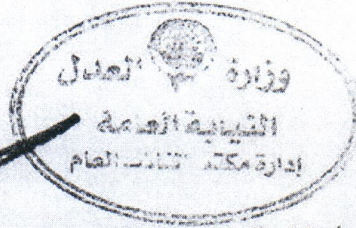 وزارة العدل
النيابة العامة
إدارة مكتب النائب العام